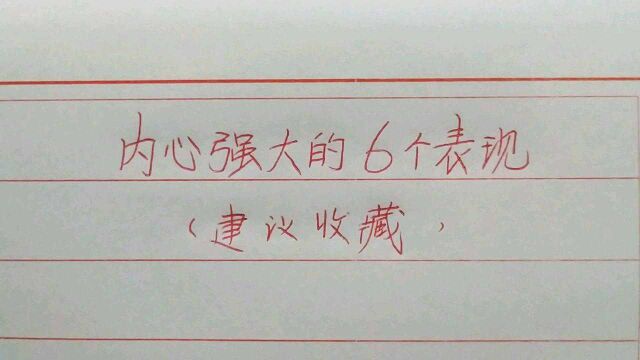 内心强大的6个表现
(建议收藏)